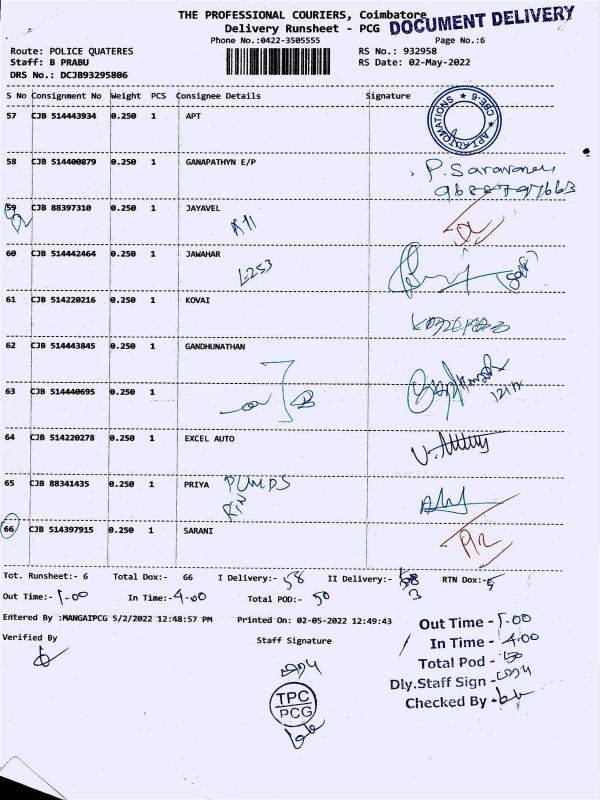 THE PROFESSIONAL COURIERS, Coimbatore
DOCUMENT DELIVERY
Delivery Runsheet - PCG
Phone No.:0422-3505555 Page No.:6
Route: POLICE QUATERES RS No.: 932958
Staff: B PRABU RS Date: 02-May-2022
DRS No.: DCJB93295806
S No Consignment No Weight PCS Consignee Details Signature
57 CJB 514443934 0.250 1 APT
APT AUTOMATIONS ★ CBE-6 ★
58 CJB 514400879 0.250 1 GANAPATHYN E/P
P. Saravanan
59 CJB 88397310 0.250 1 JAYAVEL
60 CJB 514442464 0.250 1 JAWAHAR
L-253
61 CJB 514220216 0.250 1 KOVAI
62 CJB 514443845 0.250 1 GANDHUNATHAN
63 CJB 514440695 0.250 1
64 CJB 514220278 0.250 1 EXCEL AUTO
65 CJB 88341435 0.250 1 PRIYA PUMPS
66 CJB 514397915 0.250 1 SARANI
Tot. Runsheet:- 6 Total Dox:- 66 I Delivery:- 58 II Delivery:- 3 RTN Dox:- 5
Out Time:- 1-00 In Time:- 4-00 Total POD:- 50
Entered By :MANGAIPCG 5/2/2022 12:48:57 PM Printed On: 02-05-2022 12:49:43
Verified By Staff Signature
Out Time - 1-00
In Time - 4-00
Total Pod - 50
Dly.Staff Sign -
Checked By -
TPC
PCG